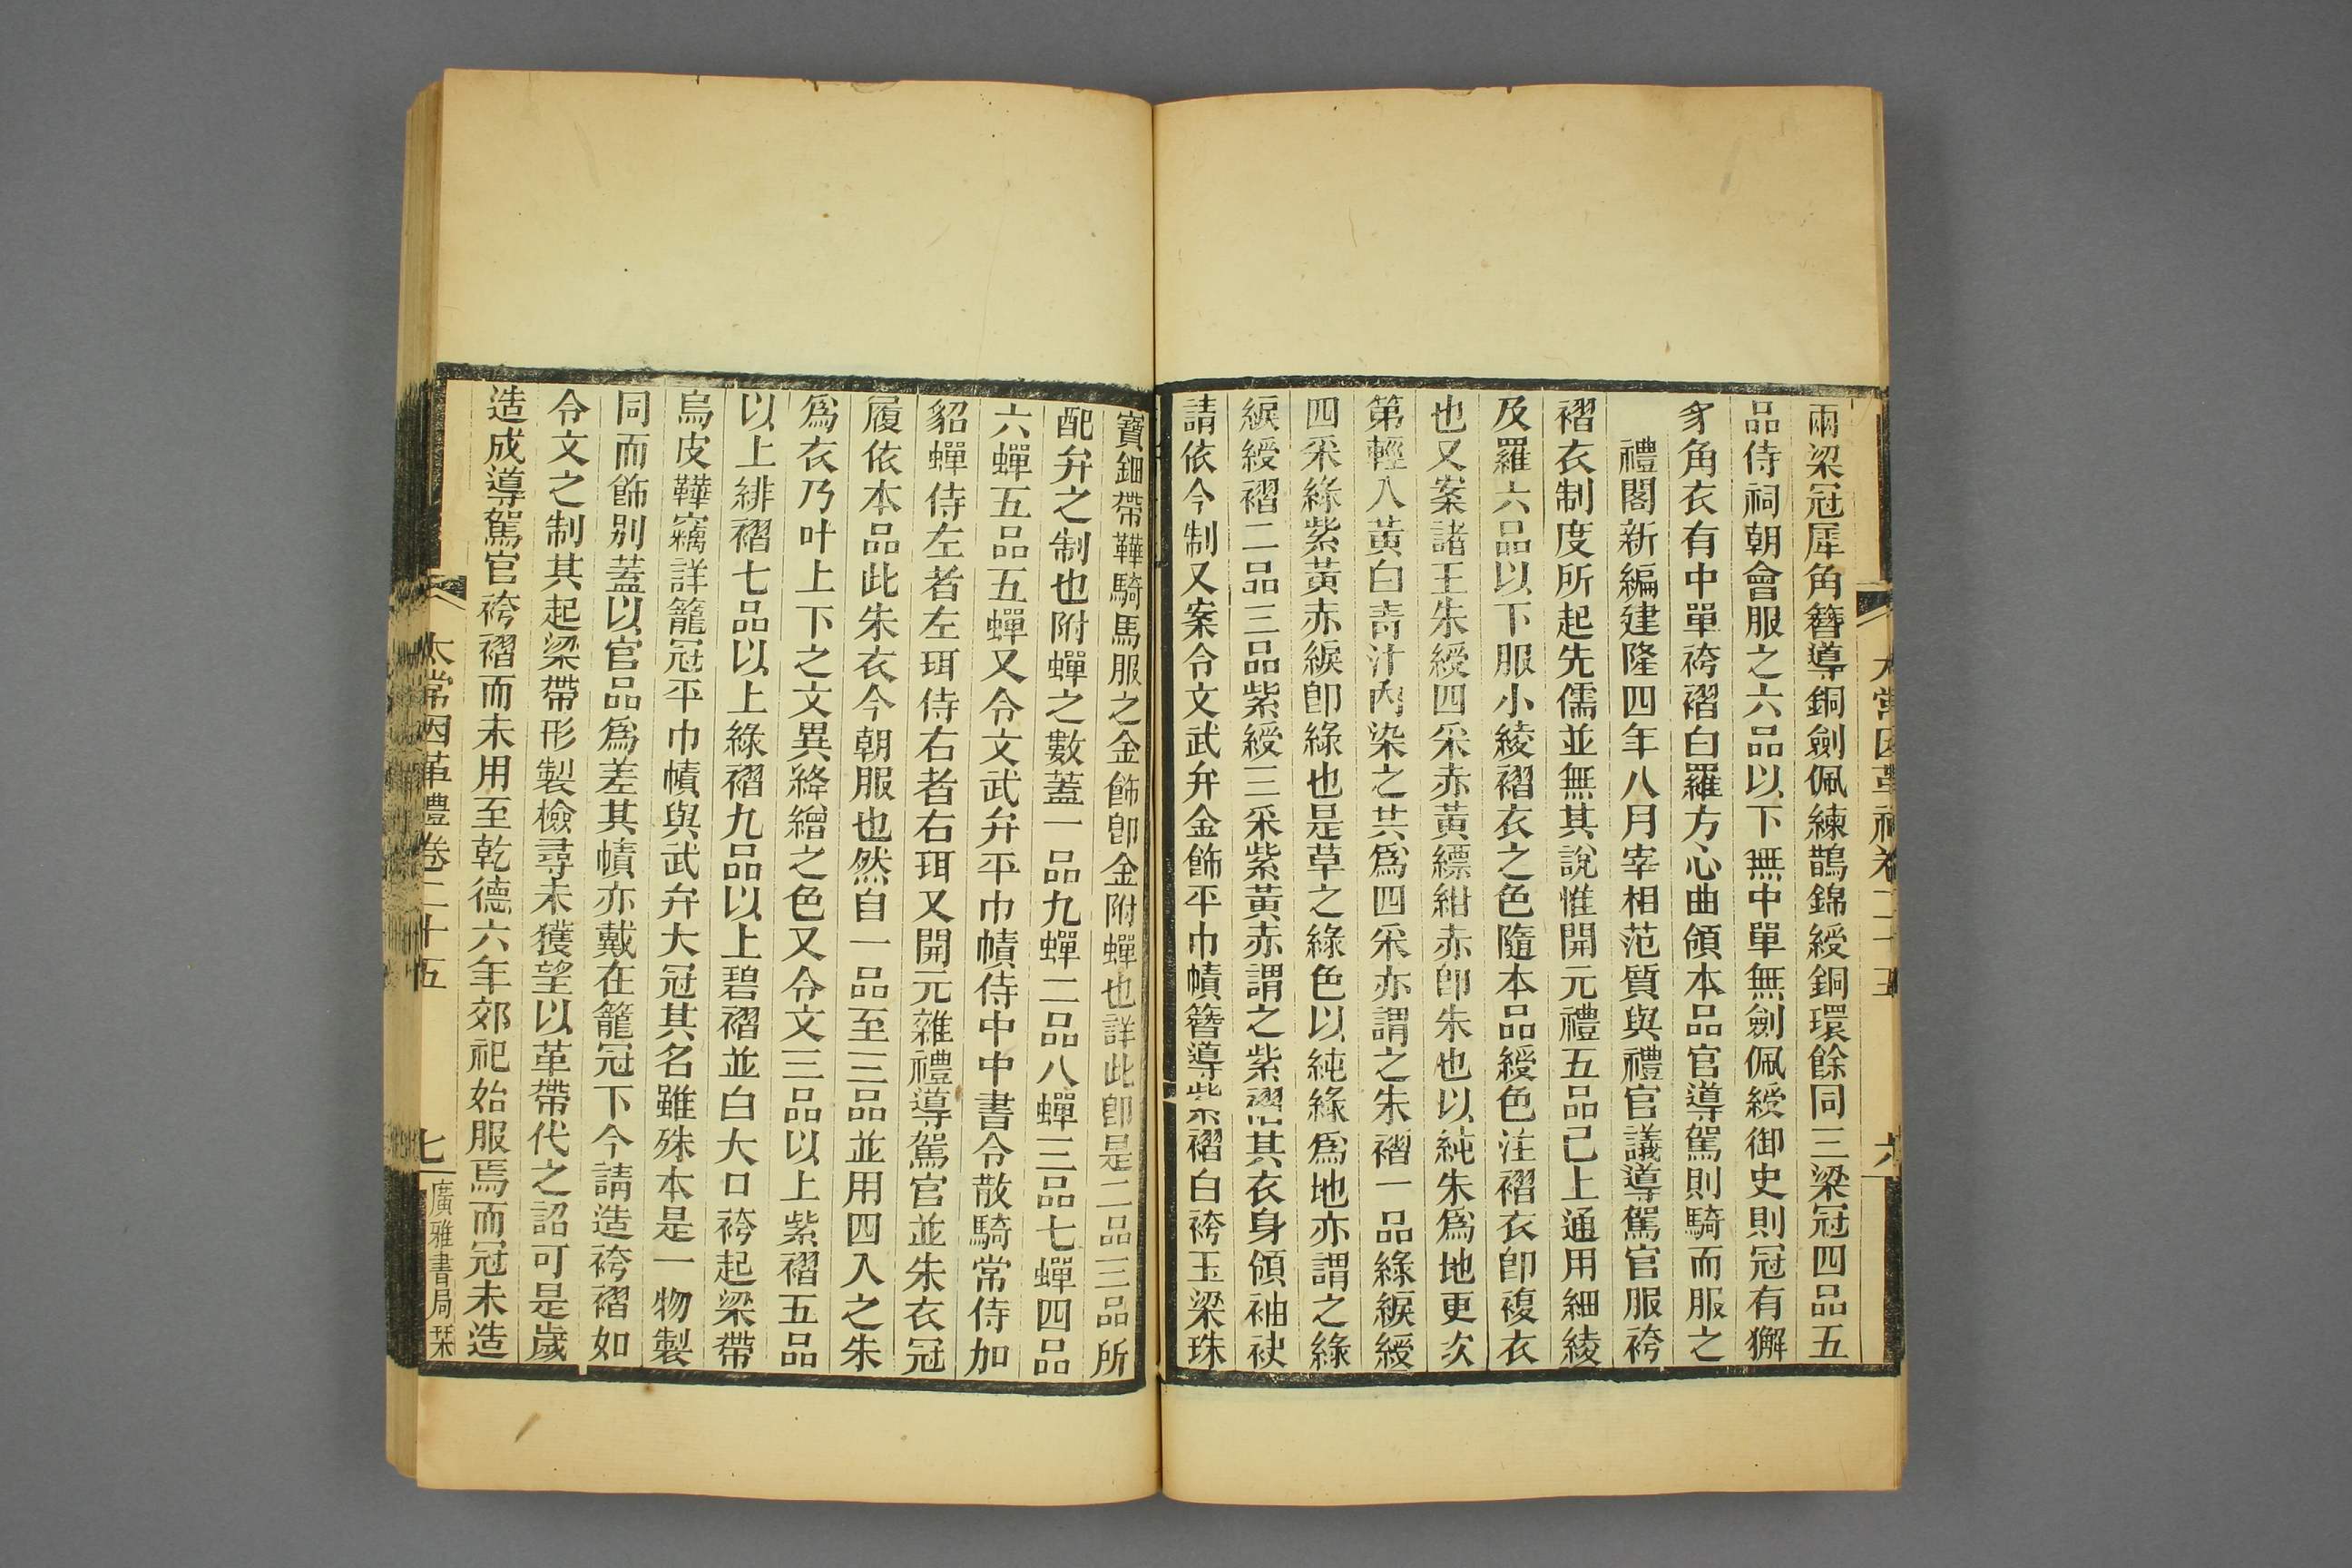 兩梁冠犀角簪導銅劍佩練鵲錦綬銅環餘同三梁冠四品五
品侍祠朝會服之六品以下無中單無劍佩綬御史則冠有獬
豸角衣有中單袴褶白羅方心曲領本品官導駕則騎而服之
禮閣新編建隆四年八月宰相范質與禮官議導駕官服袴
褶衣制度所起先儒並無其說惟開元禮五品已上通用細綾
及羅六品以下服小綾褶衣之色隨本品綬色注褶衣卽複衣
也又案諸王朱綬四采赤黃縹紺赤卽朱也以純朱爲地更次
第輕入黃白靑汁內染之共爲四采亦謂之朱褶一品綠綟綬
四采綠紫黃赤綟卽綠也是草之綠色以純綠爲地亦謂之綠
綟綬褶二品三品紫綬三采紫黃赤謂之紫褶其衣身領袖袂
請依今制又案令文武弁金飾平巾幘簪導紫褶白袴玉梁珠
寶鈿帶鞾騎馬服之金飾卽金附蟬也詳此卽是二品三品所
配弁之制也附蟬之數蓋一品九蟬二品八蟬三品七蟬四品
六蟬五品五蟬又令文武弁平巾幘侍中中書令散騎常侍加
貂蟬侍左者左珥侍右者右珥又開元雜禮導駕官並朱衣冠
履依本品此朱衣今朝服也然自一品至三品並用四入之朱
爲衣乃叶上下之文異絳繒之色又令文三品以上紫褶五品
以上緋褶七品以上綠褶九品以上碧褶並白大口袴起梁帶
烏皮鞾竊詳籠冠平巾幘與武弁大冠其名雖殊本是一物製
同而飾別蓋以官品爲差其幘亦戴在籠冠下今請造袴褶如
令文之制其起梁帶形製檢尋未獲望以革帶代之詔可是歲
造成導駕官袴褶而未用至乾德六年郊祀始服焉而冠未造
太常因革禮卷二十五
七
廣雅書局栞